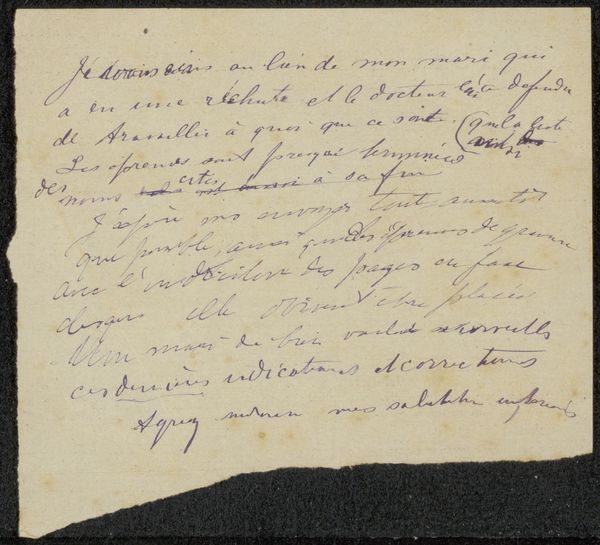 Je vous écris au lieu de mon mari qui
a eu une réchute et le docteur lui a defendu
de travailler à quoi que ce soit. (que la liste
Les épreuves sont presque terminées
des noms à sa fin
J'espère vous envoyer tout aussitôt
que possible, ainsi que les épreuves de gravure
avec l'indication des pages en face
desquels elle doivent être placés
mari de bien vouloir
ces dernières indications et corrections
Agréez mes salutations empressés